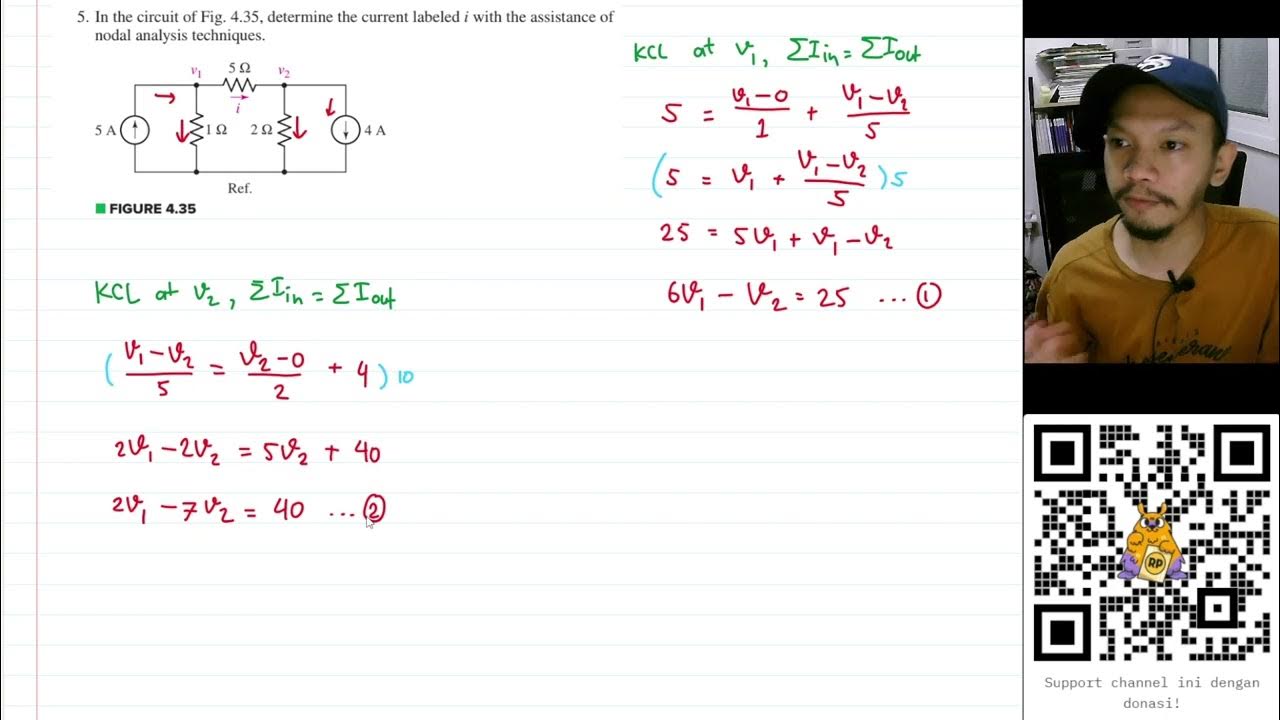 5. In the circuit of Fig. 4.35, determine the current labeled i with the assistance of
nodal analysis techniques.
v₁ 5 Ω v₂
i
5 A 1 Ω 2 Ω 4 A
Ref.
FIGURE 4.35
KCL at v₂, ΣI in = ΣI out
( (v₁ − v₂)/5 = (v₂ − 0)/2 + 4 ) 10
2v₁ − 2v₂ = 5v₂ + 40
2v₁ − 7v₂ = 40 ... ②
KCL at v₁, ΣI in = ΣI out
5 = (v₁ − 0)/1 + (v₁ − v₂)/5
( 5 = v₁ + (v₁ − v₂)/5 ) 5
25 = 5v₁ + v₁ − v₂
6v₁ − v₂ = 25 ... ①
RP
Support channel ini dengan
donasi!